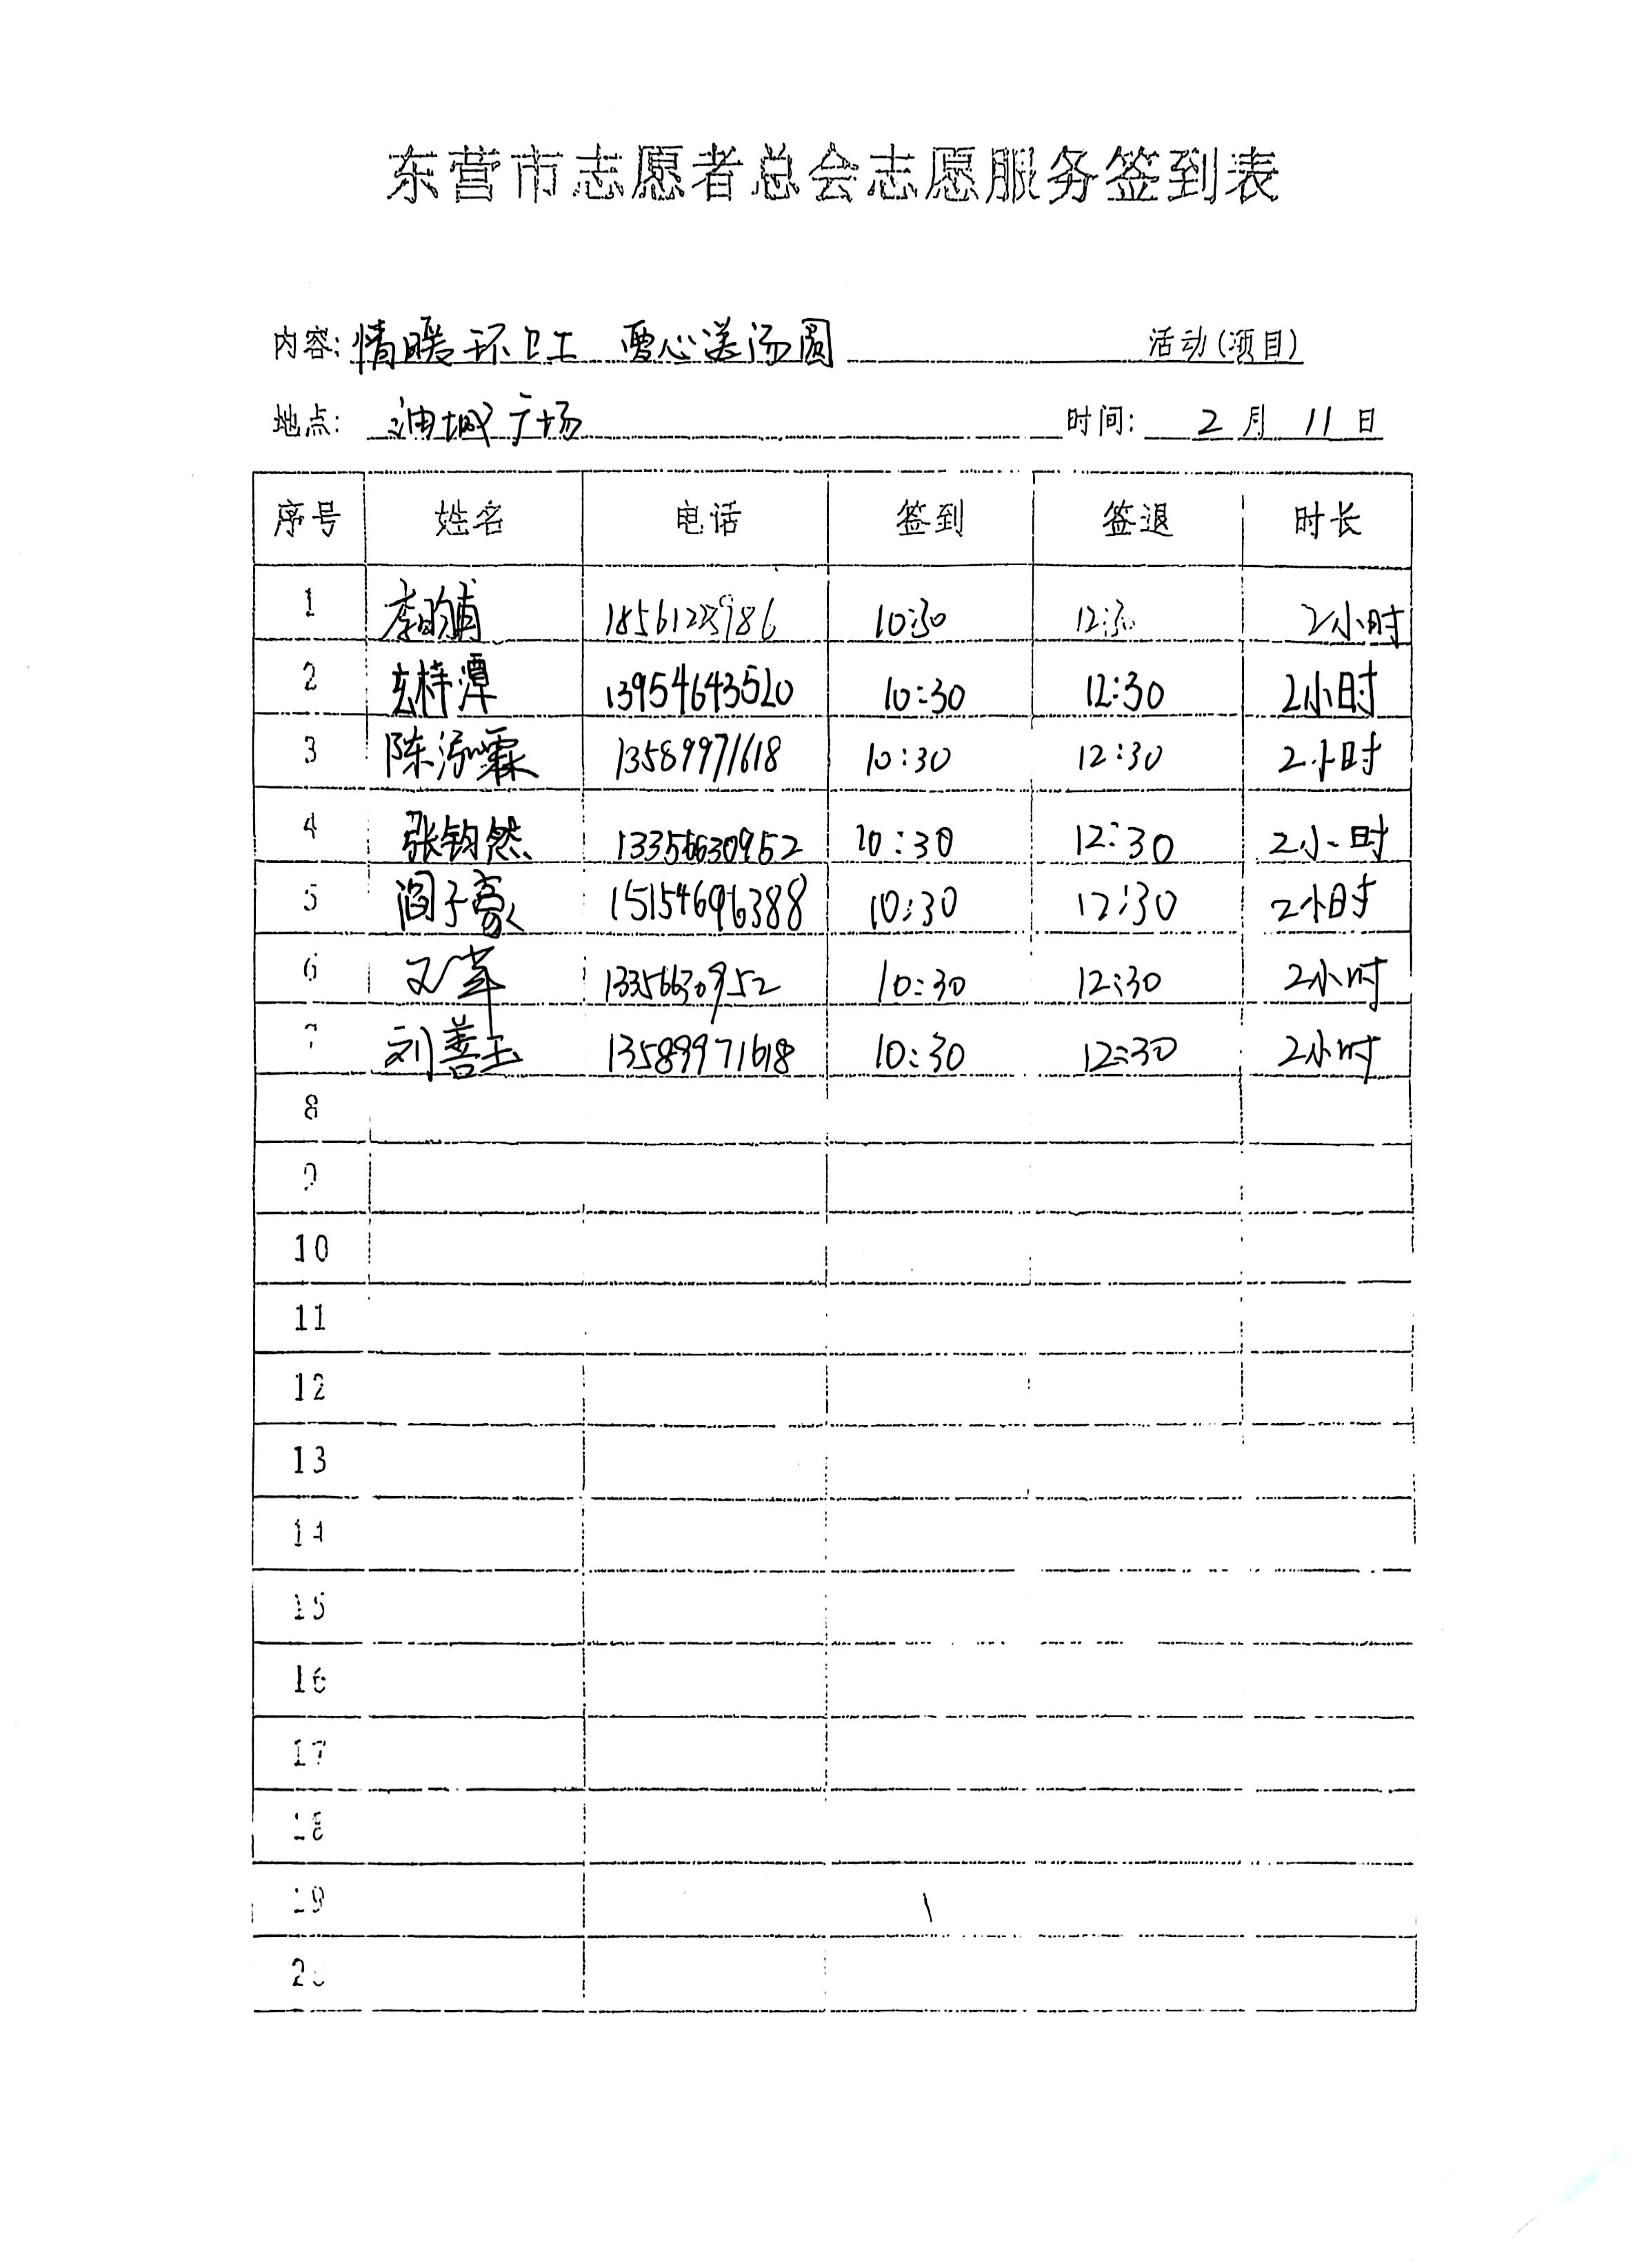 东营市志愿者总会志愿服务签到表
内容: 情暖环卫工 爱心送汤圆 活动(项目)
地点: 油城广场 时间: 2 月 11 日
序号 姓名 电话 签到 签退 时长
1 李昀甫 10:30 12:30 2小时
2 玄梓潭 13954643520 10:30 12:30 2小时
3 陈泓霖 13589971618 10:30 12:30 2小时
4 张钧然 13356630952 10:30 12:30 2小时
5 阎子豪 15154696388 10:30 12:30 2小时
6 13356630952 10:30 12:30 2小时
7 刘善玉 13589971618 10:30 12:30 2小时
8
9
10
11
12
13
14
15
16
17
18
19
20